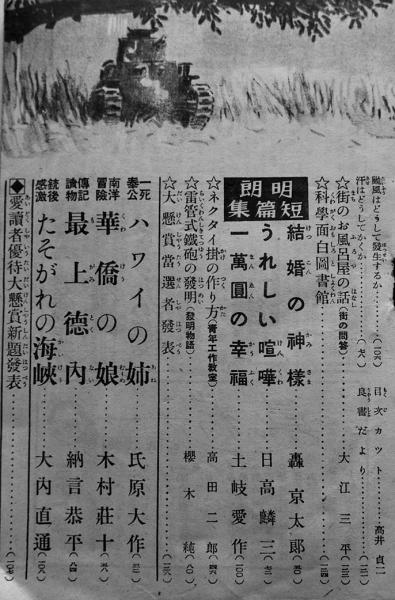 颱風はどうして發生するか
汗はどうしてかくか
目次カット 高井貞二
良書だより
☆街のお風呂屋の話(街の問答) 大江三平
☆科學面白圖書館
明朗短篇集
結婚の神樣 轟京太郎
うれしい喧嘩 日高麟三
一萬圓の幸福 土岐愛作
☆ネクタイ掛の作り方(青年工作教室) 高田二郎
☆雷管式鐵砲の發明(發明物語) 櫻木純
☆大懸賞當選者發表
一死奉公 ハワイの姉 氏原大作
南洋冒險 華僑の娘 木村莊十
傳記讀物 最上德內 納言恭平
銃後感激 たそがれの海峽 大內直通
◆愛讀者優待大懸賞新題發表